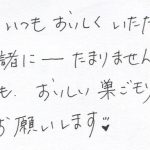 いつも おいしく いただ
諸に ー たまりません
も、おいしい 巣ごモリ
お願いします